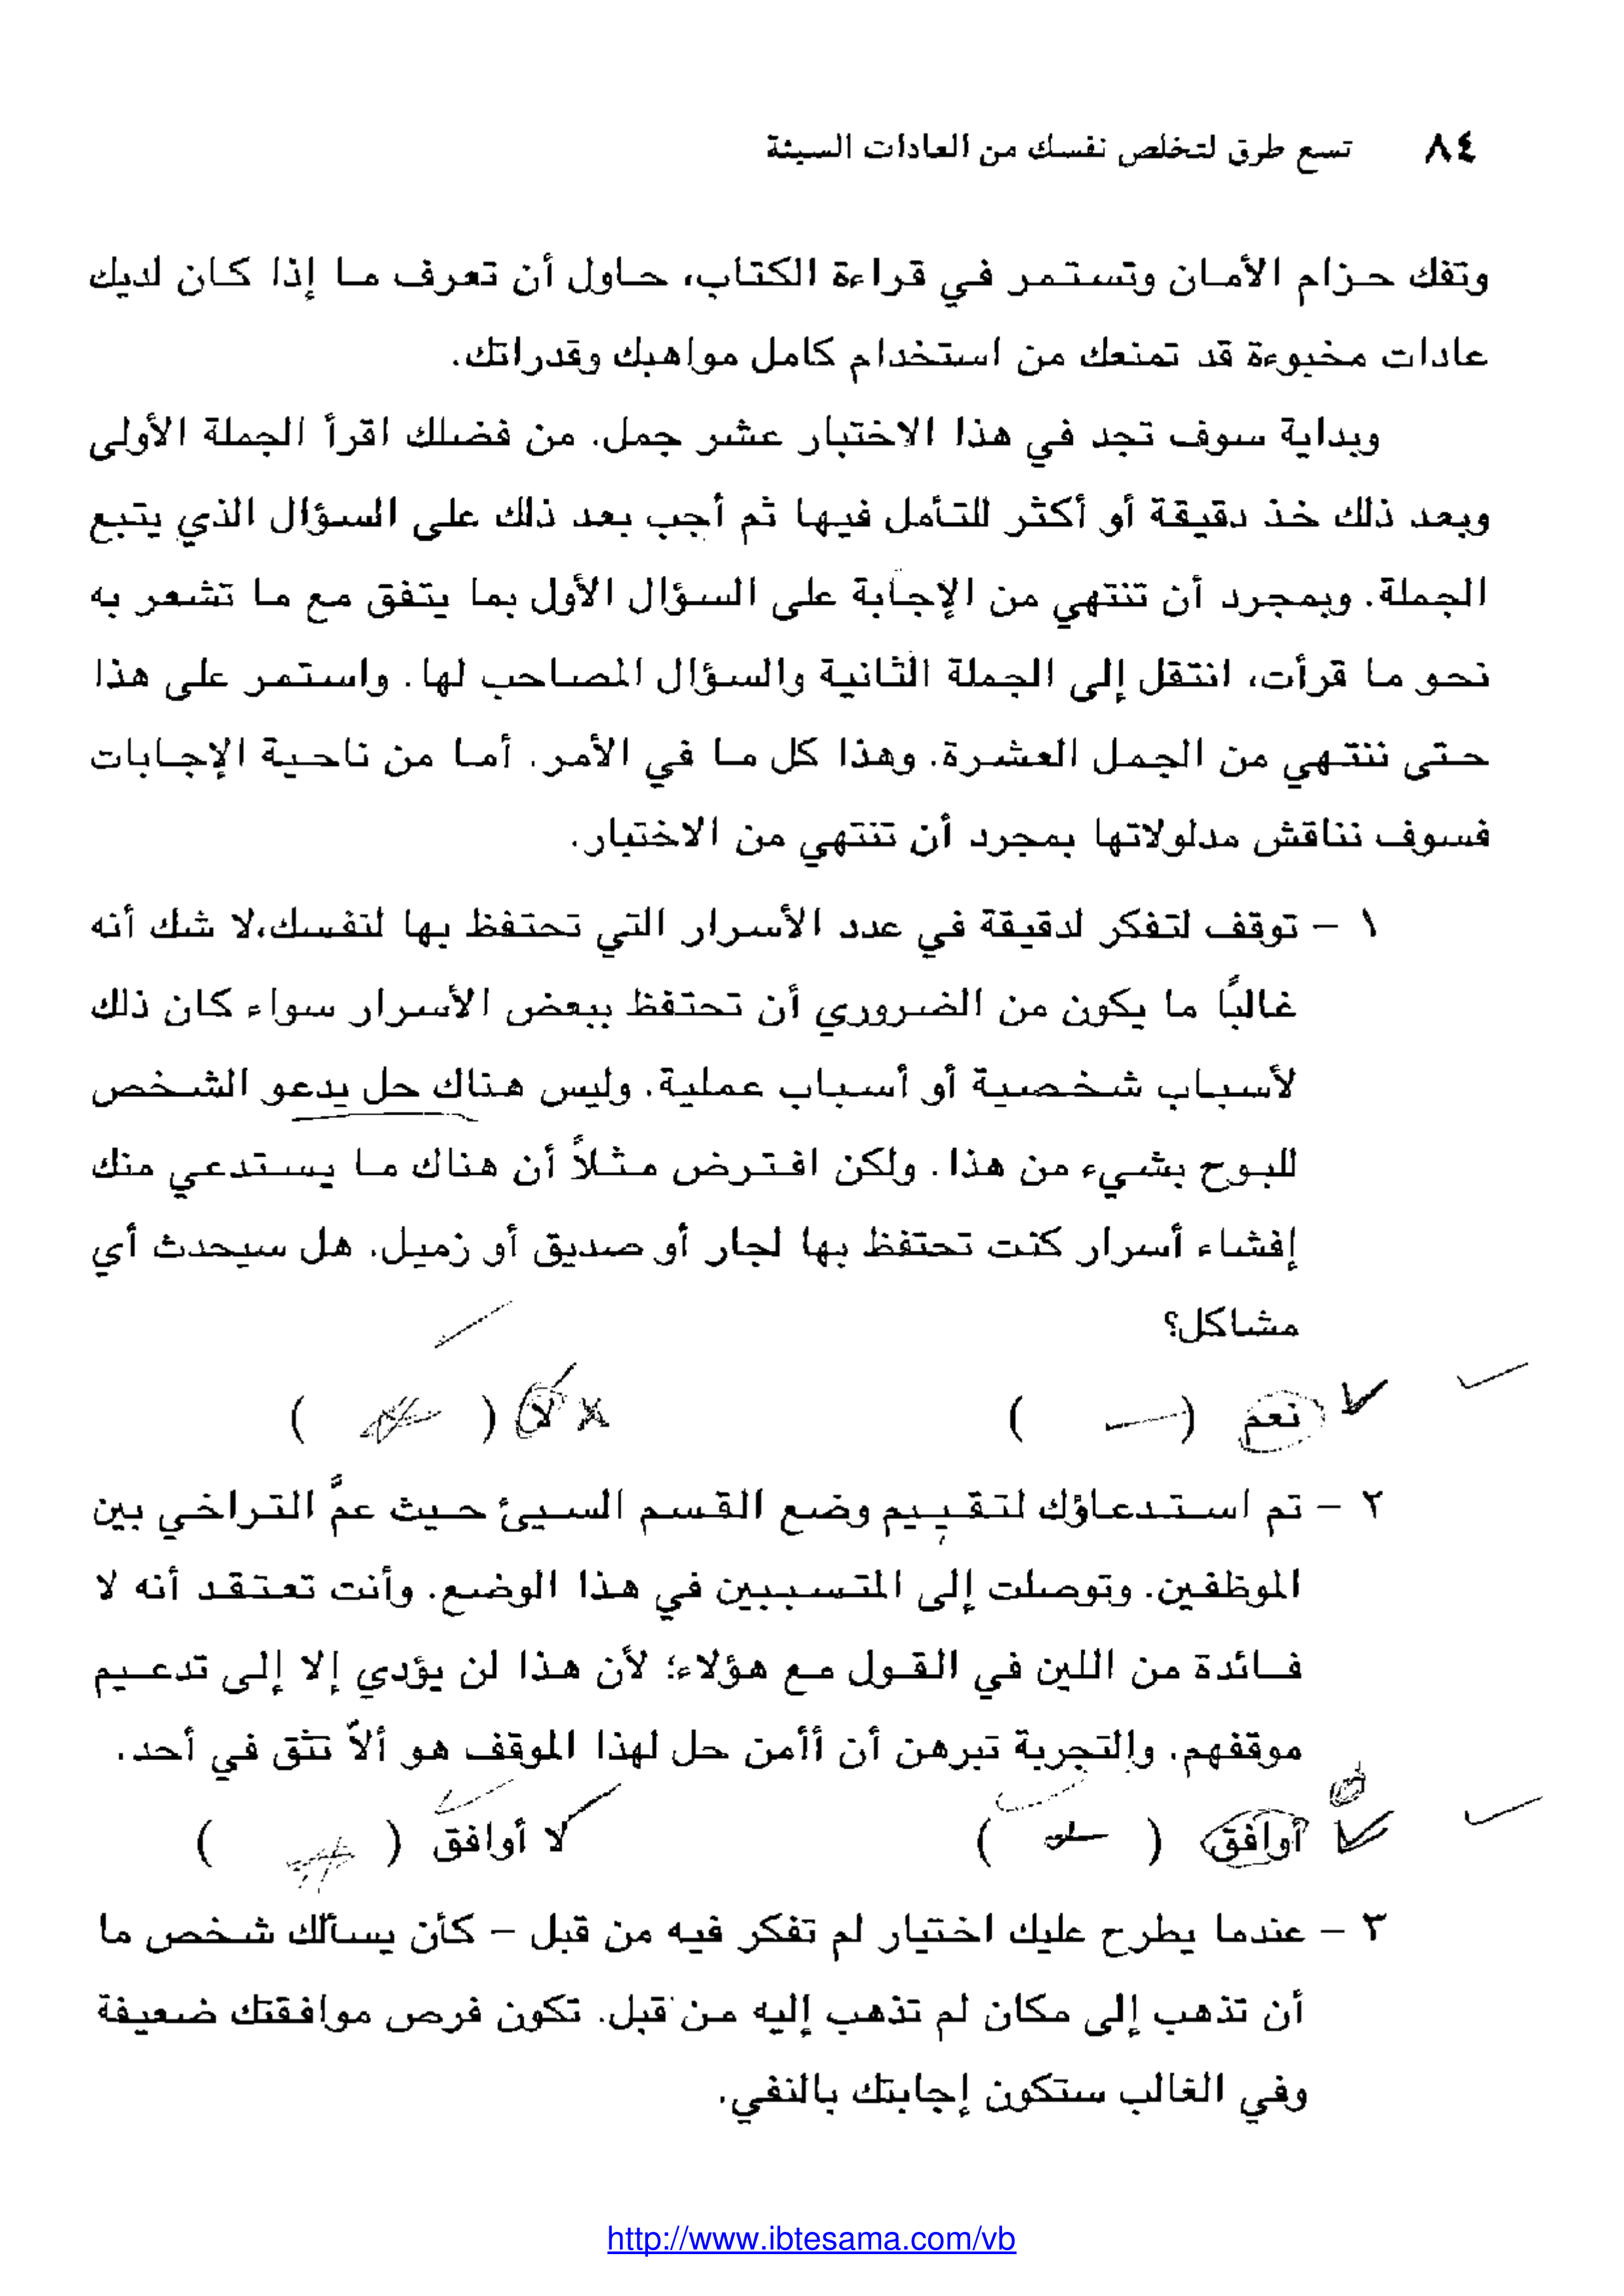 ٨٤ تسع طرق لتخلص نفسك من العادات السيئة
وتفك حزام الأمان وتستمر في قراءة الكتاب، حاول أن تعرف ما إذا كان لديك
عادات مخبوءة قد تمنعك من استخدام كامل مواهبك وقدراتك.
وبداية سوف تجد في هذا الاختبار عشر جمل. من فضلك اقرأ الجملة الأولى
وبعد ذلك خذ دقيقة أو أكثر للتأمل فيها ثم أجب بعد ذلك على السؤال الذي يتبع
الجملة. وبمجرد أن تنتهي من الإجابة على السؤال الأول بما يتفق مع ما تشعر به
نحو ما قرأت، انتقل إلى الجملة الثانية والسؤال المصاحب لها. واستمر على هذا
حتى ننتهي من الجمل العشرة. وهذا كل ما في الأمر. أما من ناحية الإجابات
فسوف نناقش مدلولاتها بمجرد أن تنتهي من الاختبار.
١ – توقف لتفكر لدقيقة في عدد الأسرار التي تحتفظ بها لنفسك،لا شك أنه
غالبًا ما يكون من الضروري أن تحتفظ ببعض الأسرار سواء كان ذلك
لأسباب شخصية أو أسباب عملية. وليس هناك حل يدعو الشخص
للبوح بشيء من هذا. ولكن افترض مثلاً أن هناك ما يستدعي منك
إفشاء أسرار كنت تحتفظ بها لجار أو صديق أو زميل. هل سيحدث أي
مشاكل؟
نعم ( ) لا ( )
٢ – تم استدعاؤك لتقييم وضع القسم السيئ حيث عمَّ التراخي بين
الموظفين. وتوصلت إلى المتسببين في هذا الوضع. وأنت تعتقد أنه لا
فائدة من اللين في القول مع هؤلاء؛ لأن هذا لن يؤدي إلا إلى تدعيم
موقفهم. والتجربة تبرهن أن أأمن حل لهذا الموقف هو ألاّ تثق في أحد.
أوافق ( ) لا أوافق ( )
٣ – عندما يطرح عليك اختيار لم تفكر فيه من قبل – كأن يسألك شخص ما
أن تذهب إلى مكان لم تذهب إليه من قبل. تكون فرص موافقتك ضعيفة
وفي الغالب ستكون إجابتك بالنفي.
http://www.ibtesama.com/vb